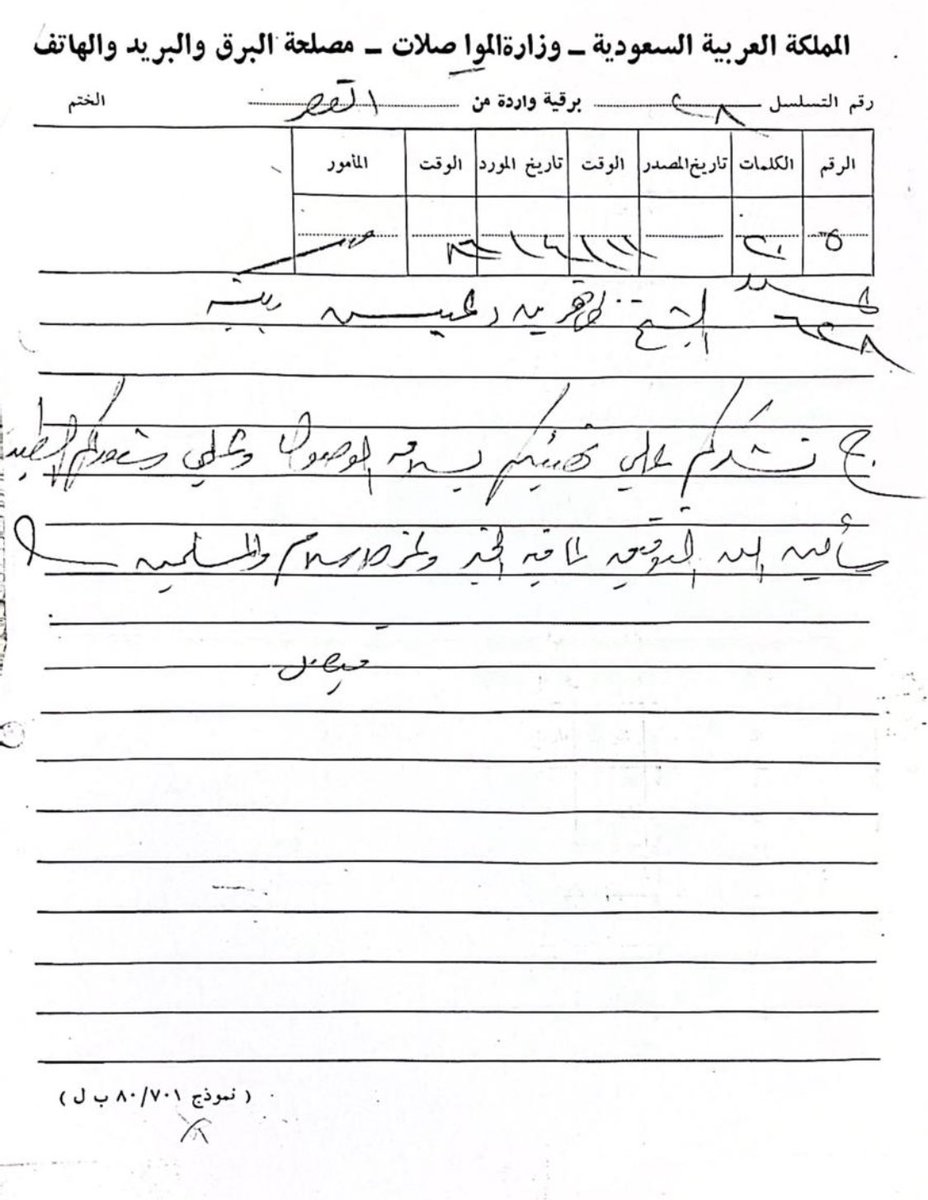 المملكة العربية السعودية – وزارة المواصلات – مصلحة البرق والبريد والهاتف
رقم التسلسل ٢٨ برقية واردة من القصر الختم
الرقم الكلمات تاريخ المصدر الوقت تاريخ المورد الوقت المأمور
٥ ٢٠
الشيخ بن
ج نشكركم على تهنئتكم بسلامة الوصول وعلى شعوركم الطيب
سائلين الله التوفيق لما فيه الخير ولنصر الاسلام والمسلمين
فيصل
( نموذج ٨٠/٧٠١ ب ل )